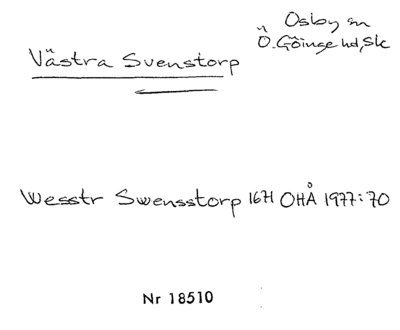 Osby sn
Västra Svenstorp
Ö. Göinge hd, Sk
Wesstr Swensstorp 1671 OHÅ 1977:70
Nr 18510